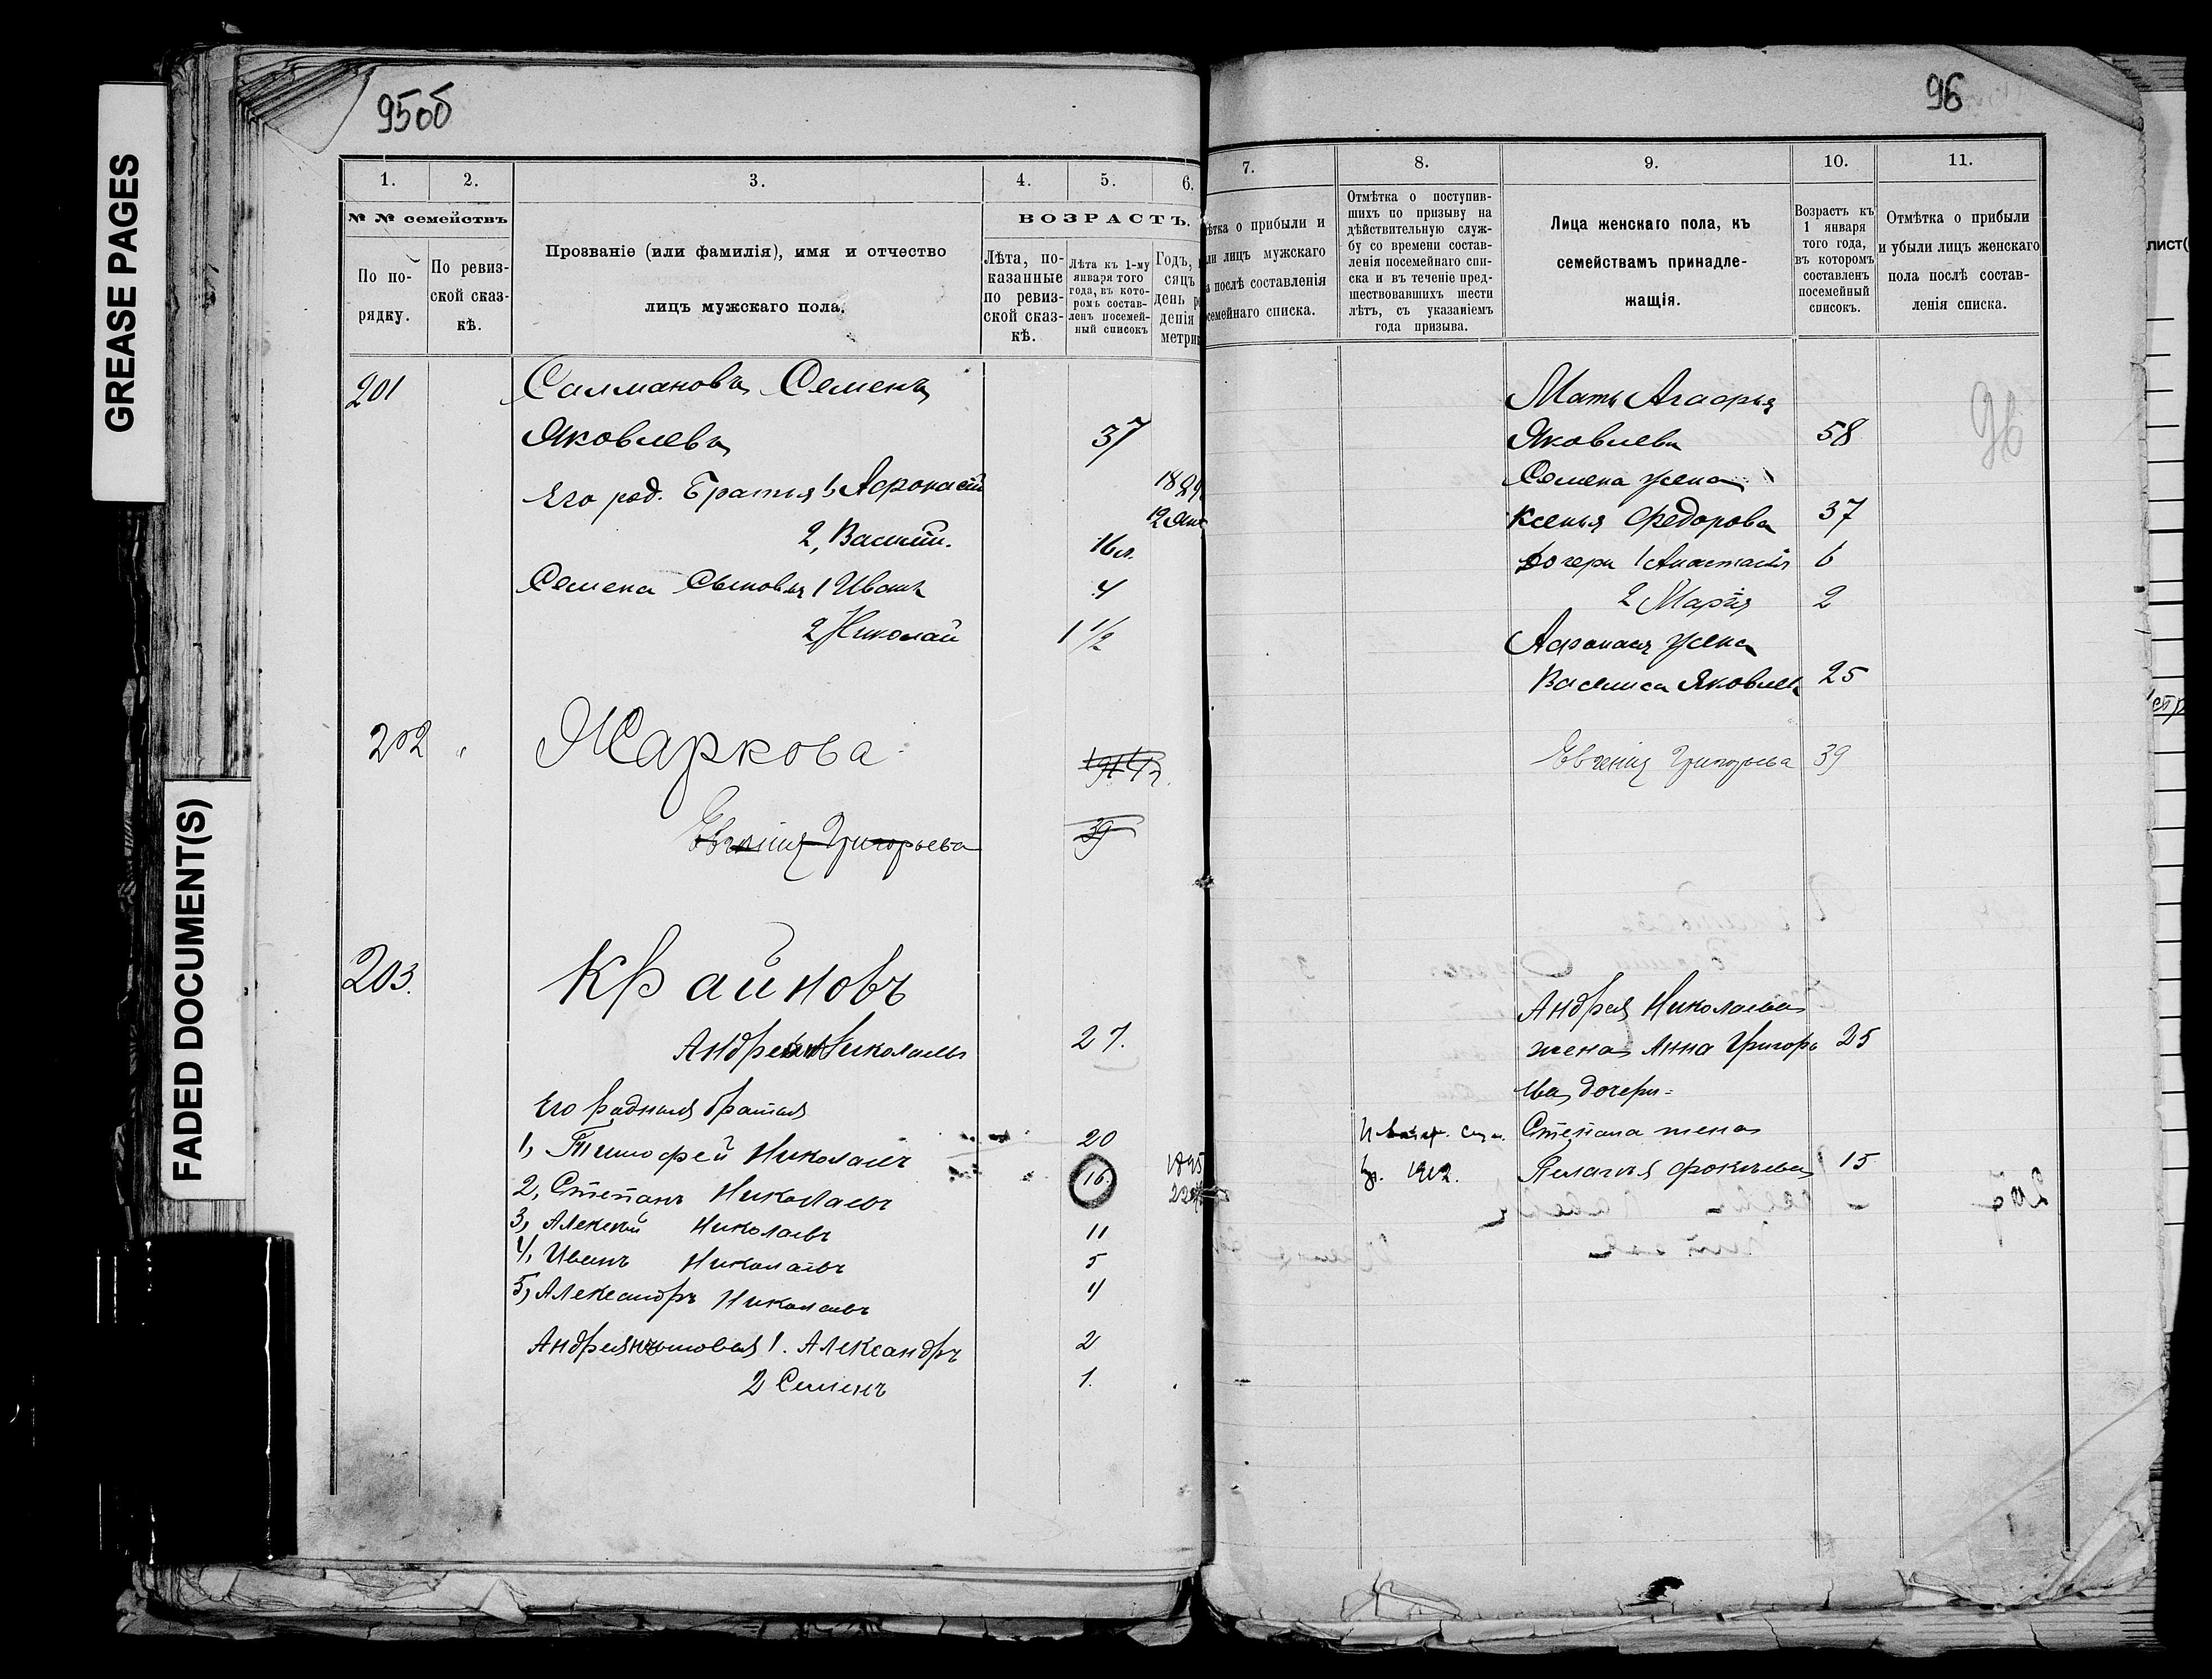 GREASE PAGES
FADED DOCUMENT(S)
95об
1.
2.
3.
4.
5.
6.
№ № семействъ
По по-
рядку.
По ревиз-
ской сказ-
кѣ.
Прозваніе (или фамилія), имя и отчество
лицъ мужскаго пола.
ВОЗРАСТЪ.
Лѣта, по-
казанные
по ревиз-
ской сказ-
кѣ.
Лѣта къ 1-му
января того
года, въ кото-
ромъ состав-
ленъ посемей-
ный списокъ
Годъ,
сяцъ
день р
денія
метри
201
Салмановъ Семенъ
Яковлевъ 37
Его род. Братья 1, Афонасій 18
12 Янв
2, Василій. 16 л.
Семена Сыновья 1 Иванъ 4
2, Николай 1 1/2
202
Жаркова
Евгенія Григорьева 39
203.
Крайновъ
Андрей Николаевъ 27.
Его родныя братья
1, Тимофей Николаевъ 20
2, Степанъ Николаевъ 16. 1895
22
3, Алексѣй Николаевъ 11
4, Иванъ Николаевъ 5
5, Александръ Николаевъ 4
Андрея сыновья 1. Александръ 2
2 Семенъ 1.
96
7.
8.
9.
10.
11.
ѣтка о прибыли и
ли лицъ мужскаго
а послѣ составленія
семейнаго списка.
Отмѣтка о поступив-
шихъ по призыву на
дѣйствительную служ-
бу со времени состав-
ленія посемейнаго спи-
ска и въ теченіе пред-
шествовавшихъ шести
лѣтъ, съ указаніемъ
года призыва.
Лица женскаго пола, къ
семействамъ принадле-
жащія.
Возрастъ къ
1 января
того года,
въ которомъ
составленъ
посемейный
списокъ.
Отмѣтка о прибыли
и убыли лицъ женскаго
пола послѣ состав-
ленія списка.
96
Мать Агафья
Яковлева 58
Семена жена
Ксенья Федорова 37
Дочери 1 Анастасія 6
2 Марія 2
Афонася жена
Василиса Яковлев 25
Евгенія Григорьева 39
Андрея Николаева
жена Анна Григорь 25
ева, дочери=
Степана жена
1912. Пелагья Фокѣева 15
лист(